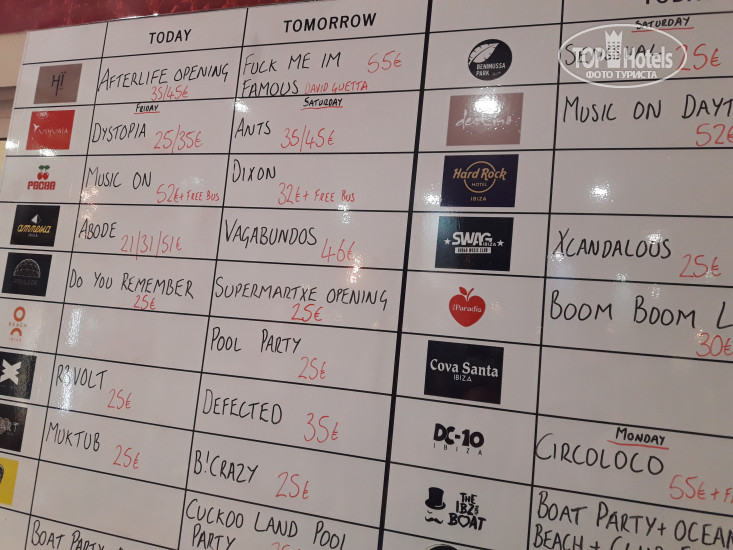 TODAY
TOMORROW
HÏ
AFTERLIFE OPENING
35/45€
FUCK ME IM
FAMOUS DAVID GUETTA
55€
USHUAIA
FRIDAY
DYSTOPIA 25/35€
SATURDAY
ANTS 35/45€
PACHA
MUSIC ON
52€ + FREE BUS
DIXON
32€ + FREE BUS
amnesia
IBIZA
ABODE
21/31/51€
VAGABUNDOS
46€
PRIVILEGE
DO YOU REMEMBER
25€
SUPERMARTXE OPENING
25€
O BEACH
IBIZA
POOL PARTY
25€
R3VOLT
25€
DEFECTED
35€
MUKTUB
25€
B!CRAZY
25€
BOAT PARTY
CUCKOO LAND POOL
PARTY
BENIMUSSA
PARK
SATURDAY
25€
destino
MUSIC ON DAYT
52€
Hard Rock
HOTEL
IBIZA
SWAG
IBIZA
URBAN MUSIC CLUB
XCANDALOUS
25€
Paradis
BOOM BOOM L
30€
Cova Santa
IBIZA
DC-10
IBIZA
MONDAY
CIRCOLOCO
55€ + F
THE
IBZA
BOAT
BOAT PARTY + OCEAN
BEACH + CLUB
TOP Hotels
ФОТО ТУРИСТА